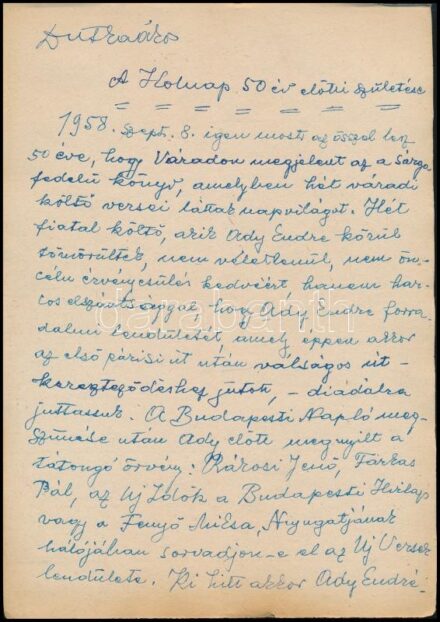 Dutka Ákos
A Holnap 50 év előtti születése
1958. szept. 8. igen most az ősszel lesz
50 éve, hogy Váradon megjelent az a sárga
fedelű könyv, amelyben hét váradi
költő versei láttak napvilágot. Hét
fiatal költő, akik Ady Endre körül
tömörültek, nem véletlenül, nem ön-
célú érvényesülés kedvéért hanem har-
cos elszántsággal, hogy Ady Endre forra-
dalmi lendületét, amely éppen akkor
az első párisi út után válságos út-
kereszteződéshez jutott, – diadalra
juttassuk. A Budapesti Napló meg-
szünése után Ady előtt megnyilt a
tátongó örvény: Rákosi Jenő, Farkas
Pál, az Uj Idők a Budapesti Hirlap
vagy a Fenyő Miksa, Nyugatjának
hálójában sorvadjon-e el az Uj Versek
lendülete. Ki hitt akkor Ady Endré-
darabanth